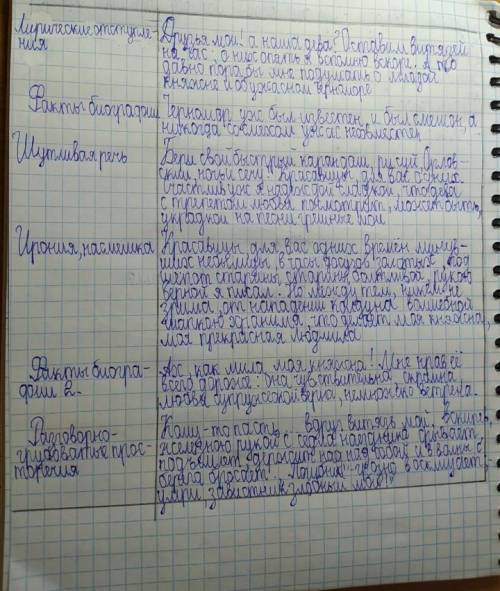 Лирические отступле-
ния
Друзья мои! а наша дева? Оставим витязей
на час; о них опять я вспомню вскоре. А то
давно пора бы мне подумать о младой
княжне и об ужасном Черноморе
Факты биографии
Черномор уж был известен, и был смешон, а
никогда со смехом ужас несовместен
Шутливая речь
Бери свой быстрый карандаш, рисуй, Орлов-
ский, ночь и сечу! Красавицы, для вас одних
Счастлив уж я надеждой сладкой, что дева
с трепетом любви посмотрит, может быть,
украдкой на песни грешные мои
Ирония, насмешка
Красавицы, для вас одних времен минув-
ших небылицы, в часы досугов золотых, под
шепот старины болтливой, рукою
верной я писал. Но между тем, никем не
зрима, от нападений колдуна волшебной
шапкою хранима, что делает моя княжна,
моя прекрасная Людмила
Факты биогра-
фии 2.
Ах, как мила моя княжна! Мне нрав её
всего дороже: она чувствительна, скромна,
любви супружеской верна, немножко ветрена.
Разговорно-
грубоватые прос-
торечия
Кому-то пасть... вдруг витязь мой, вскипев,
железною рукой с седла наездника срывает,
подъемлет, держит над собой и в волны с
берега бросает. "Погибни! - грозно восклицает;
умри, завистник злобный мой!"